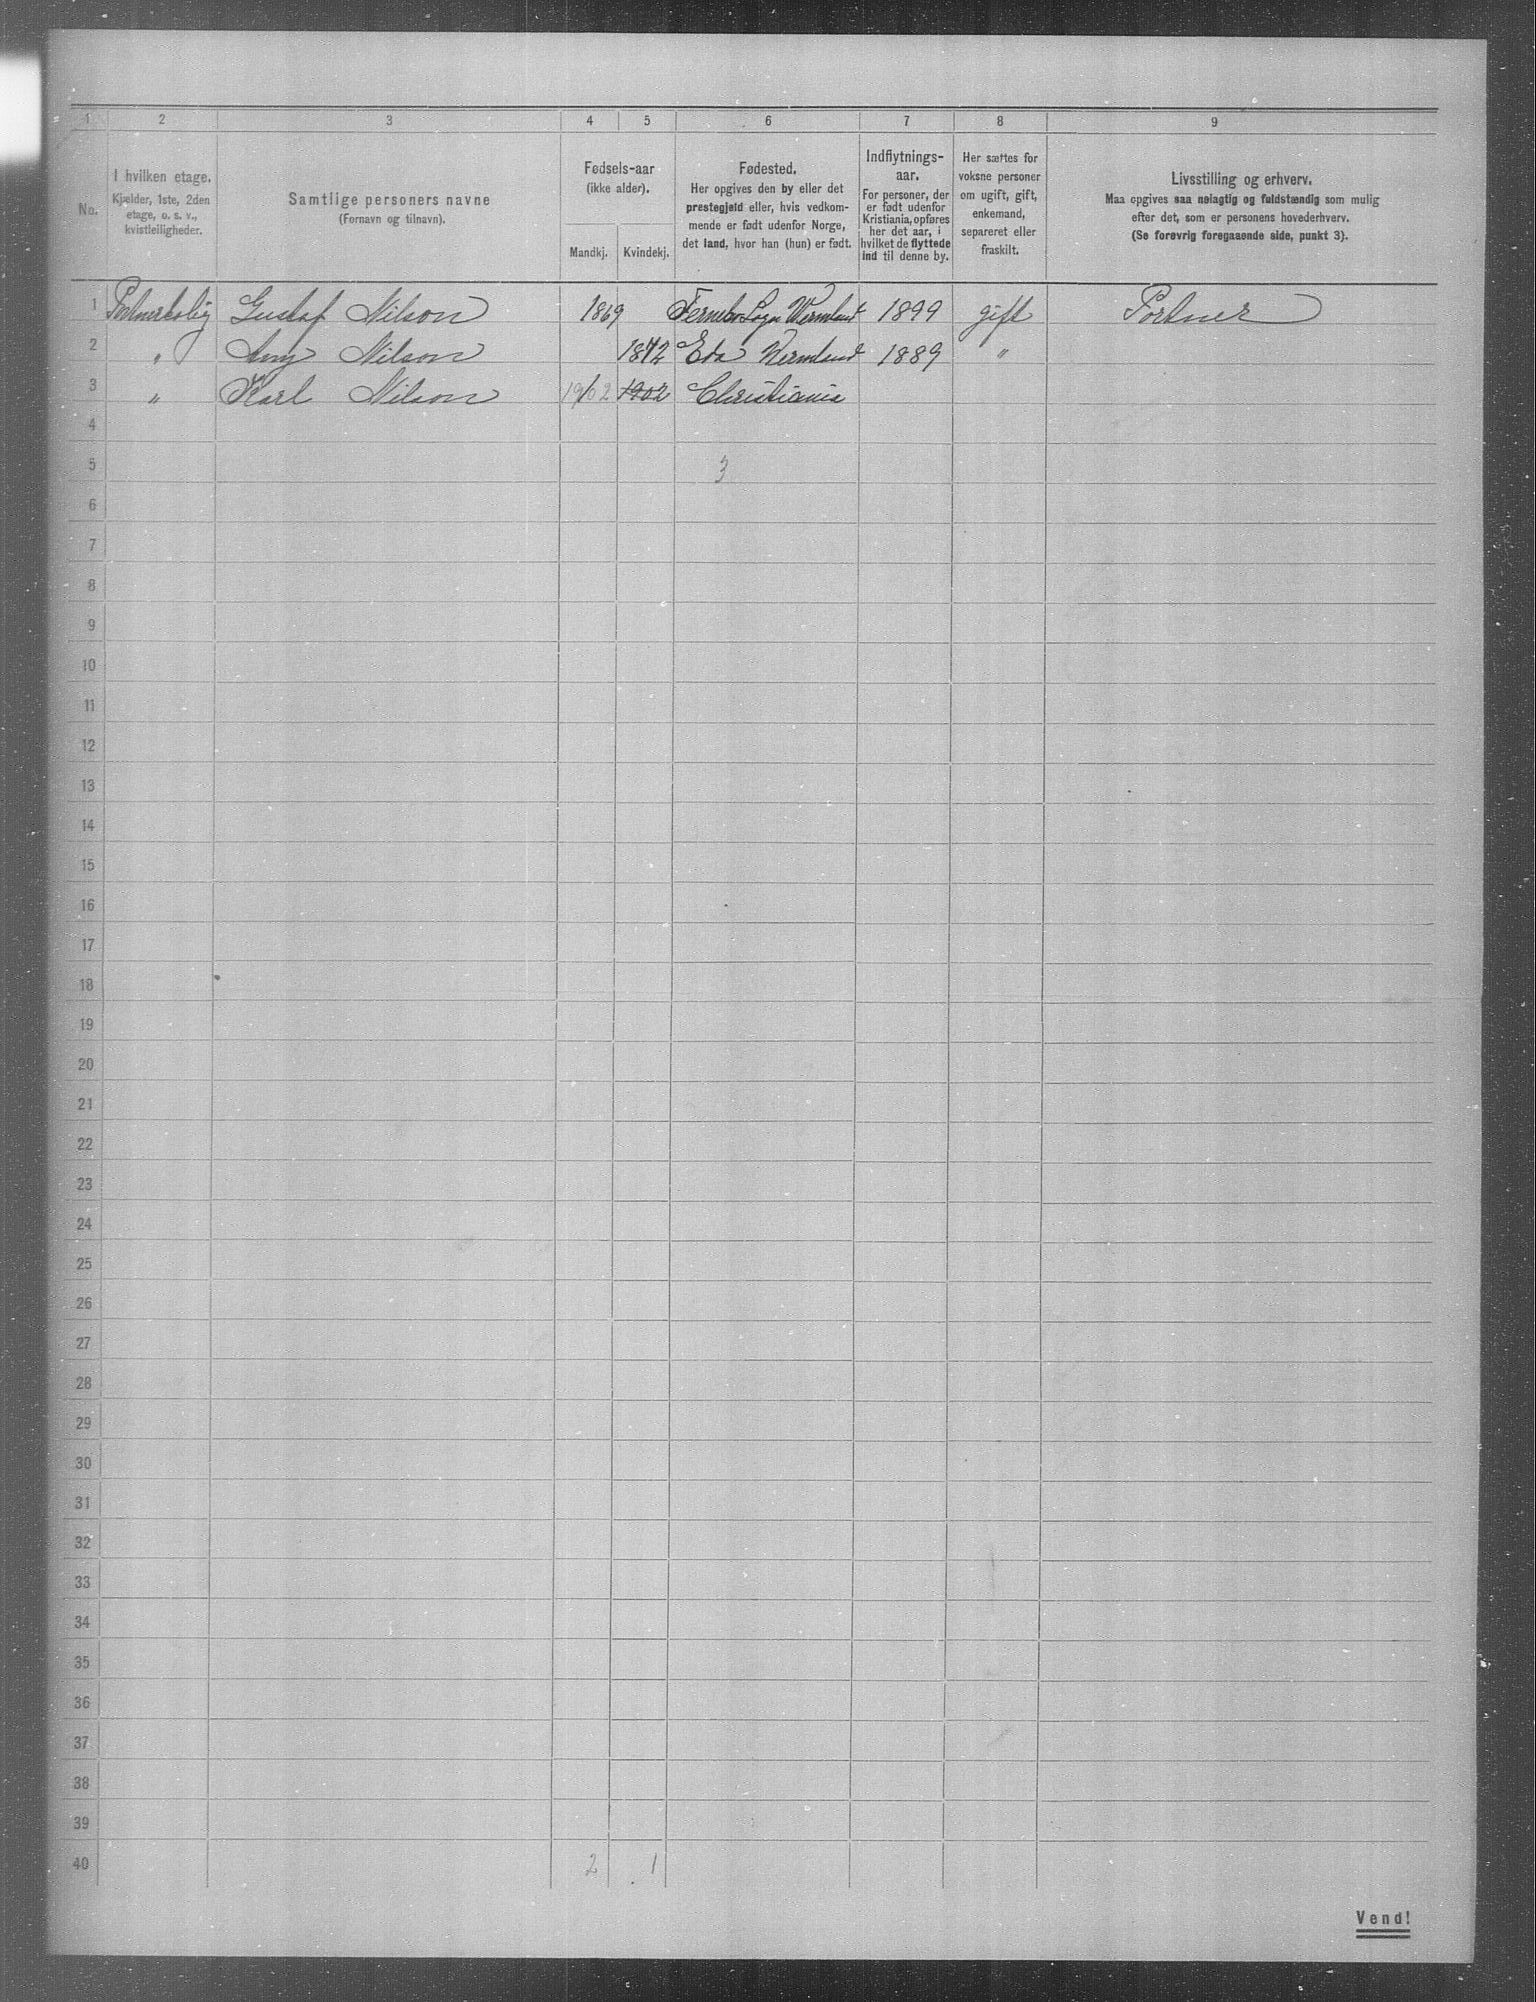 1 2 3 4 5 6 7 8 9
No.
I hvilken etage.
Kjælder, 1ste, 2den
etage, o. s. v.,
kvistleiligheder.
Samtlige personers navne
(Fornavn og tilnavn).
Fødsels-aar
(ikke alder).
Mandkj. Kvindekj.
Fødested.
Her opgives den by eller det
prestegjeld eller, hvis vedkom-
mende er født udenfor Norge,
det land, hvor han (hun) er født.
Indflytnings-
aar.
For personer, der
er født udenfor
Kristiania, opføres
her det aar, i
hvilket de flyttede
ind til denne by.
Her sættes for
voksne personer
om ugift, gift,
enkemand,
separeret eller
fraskilt.
Livsstilling og erhverv.
Maa opgives saa nøiagtig og fuldstændig som mulig
efter det, som er personens hovederhverv.
(Se forøvrig foregaaende side, punkt 3).
1 Portnerbolig Gustaf Nilson 1869 Wermland 1899 gift Portner
2 " Nilson 1872 Eda Wermland 1889 "
3 " Karl Nilson 1902 1902 Christiania
4
5 3
6
7
8
9
10
11
12
13
14
15
16
17
18
19
20
21
22
23
24
25
26
27
28
29
30
31
32
33
34
35
36
37
38
39
40 2 1
Vend!